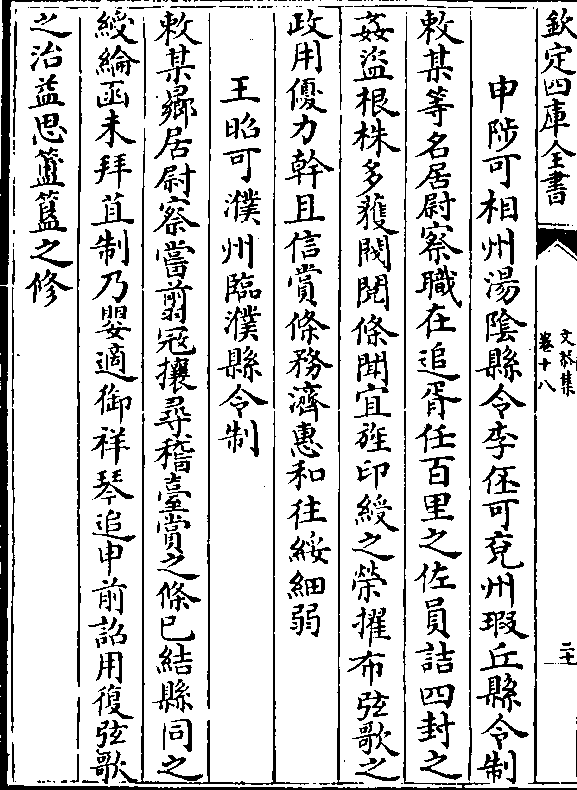 欽定四庫全書
文恭集
卷十八
二十
申陟可相州湯陰縣令李伾可兗州瑕丘縣令制
敕某等名居尉寮職在追胥任百里之佐員詰四封之
姦盜根株多獲閥閱條聞宜旌印綬之榮擢布弦歌之
政用優力幹且信賞條務濟惠和往綏細弱
王昭可濮州臨濮縣令制
敕某曏居尉察當翦寇攘尋稽臺賞之條已結縣同之
綬綸函未拜苴制乃嬰適御祥琴追申前詔用復弦歌
之治益思簠簋之修